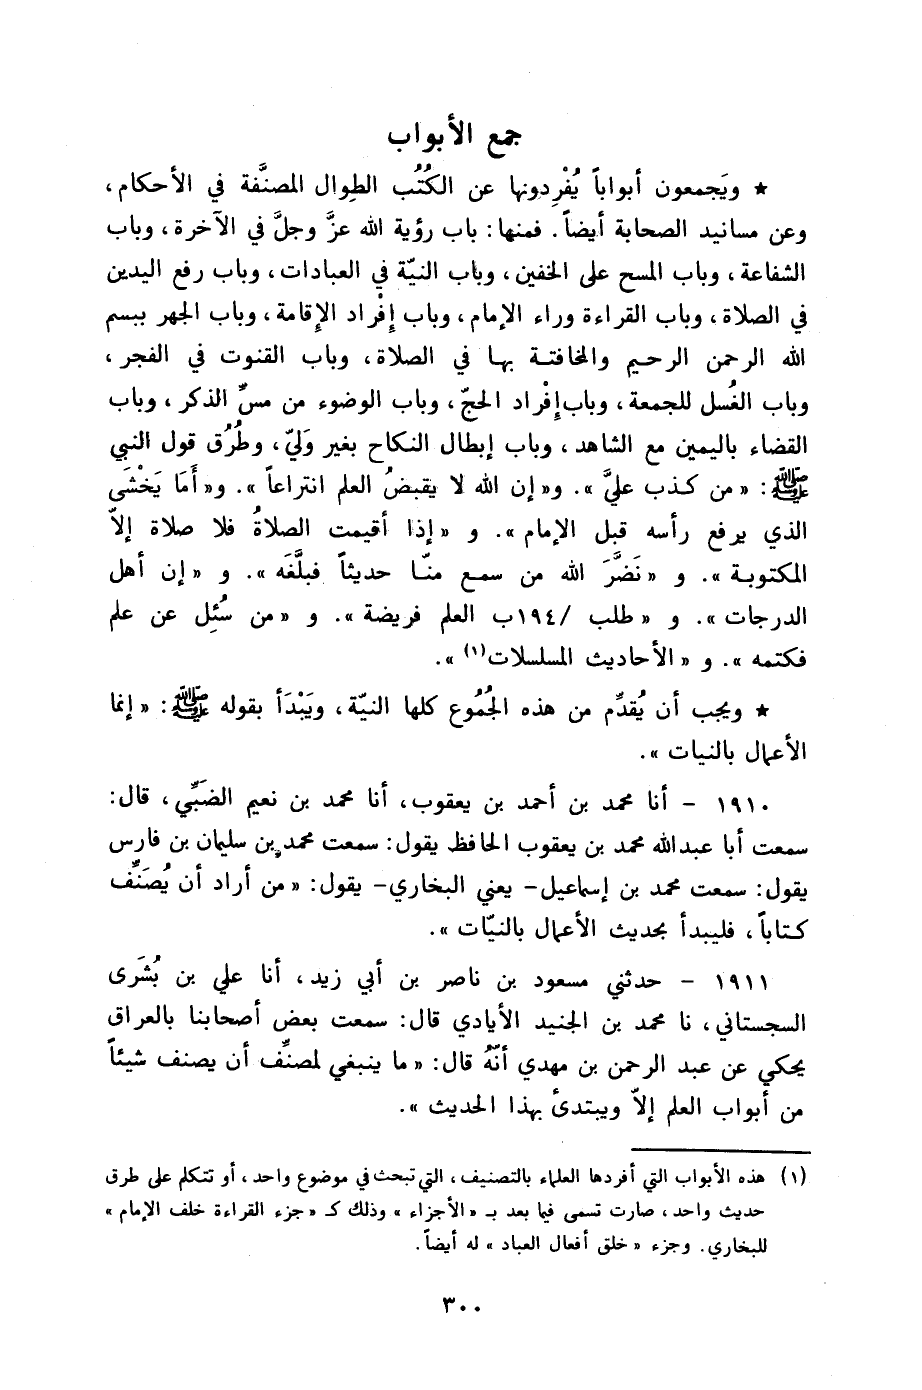 جمع الأبواب
★ ويَجمعون أبواباً يُفْرِدونها عن الكُتُب الطِوال المصنَّفة في الأحكام،
وعن مسانيد الصحابة أيضاً. فمنها: باب رؤية الله عزَّ وجلَّ في الآخرة، وباب
الشفاعة، وباب المسح على الخفين، وباب النيّة في العبادات، وباب رفع اليدين
في الصلاة، وباب القراءة وراء الإمام، وباب إفْراد الإقامة، وباب الجهر ببسم
الله الرحمن الرحيم والمخافتة بها في الصلاة، وباب القنوت في الفجر،
وباب الغُسل للجمعة، وباب إفْراد الحجّ، وباب الوضوء من مسِّ الذكر، وباب
القضاء باليمين مع الشاهد، وباب إبطال النكاح بغير وَليّ، وطُرُق قول النبي
ﷺ: « من كذب عليَّ ». و« إن الله لا يقبضُ العلم انتراعاً ». و« أَمَا يَخْشَى
الذي يرفع رأسه قبل الإمام ». و « إذا أقيمت الصلاةُ فلا صلاة إلاّ
المكتوبة ». و « نَضَّرَ الله من سمع منّا حديثاً فبلَّغَه ». و « إن أهل
الدرجات ». و « طلب /١٩٤ب العلم فريضة ». و « من سُئِل عن علم
فكتمه ». و « الأحاديث المسلسلات(١) ».
★ ويجب أن يُقدِّم من هذه الجُمُوع كلها النيّة، ويَبْدَأ بقوله ﷺ: « إنما
الأعمال بالنيات ».
١٩١٠ - أنا محمد بن أحمد بن يعقوب، أنا محمد بن نعيم الضَبِّي، قال:
سمعت أبا عبدالله محمد بن يعقوب الحافظ يقول: سمعت محمد بن سليمان بن فارس
يقول: سمعت محمد بن إسماعيل - يعني البخاري - يقول: « من أراد أن يُصَنِّف
كتاباً، فليبدأ بحديث الأعمال بالنيّات ».
١٩١١ - حدثني مسعود بن ناصر بن أبي زيد، أنا علي بن بُشَرى
السجستاني، نا محمد بن الجنيد الأيادي قال: سمعت بعض أصحابنا بالعراق
يحكي عن عبد الرحمن بن مهدي أنّهُ قال: « ما ينبغي لمصنِّف أن يصنف شيئاً
من أبواب العلم إلاّ ويبتدئ بهذا الحديث ».
(١) هذه الأبواب التي أفردها العلماء بالتصنيف، التي تبحث في موضوع واحد، أو تتكلم على طرق
حديث واحد، صارت تسمى فيما بعد بـ « الأجزاء » وذلك كـ « جزء القراءة خلف الإمام »
للبخاري. وجزء « خلق أفعال العباد » له أيضاً.
٣٠٠